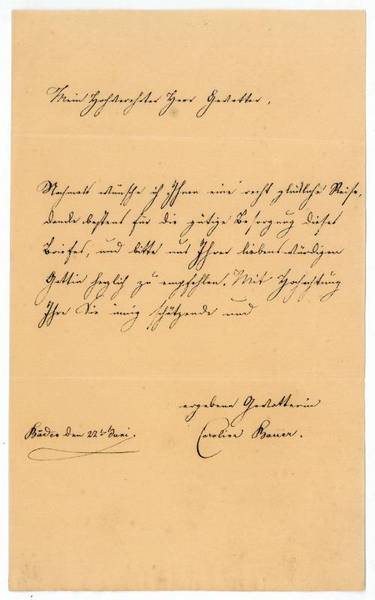 Mein Hochverehrter Herr Gevatter,
Nochmals wünsche ich Ihnen eine recht glückliche Reise,
danke bestens für die gütige Besorgung dieses
Briefes, und bitte uns Ihrer liebenswürdigen
Gattin herzlich zu empfehlen. Mit Hochachtung
Ihre Sie innig schätzende und
ergebene Gevatterin
Caroline Bauer.
Baden den 22t Juni.